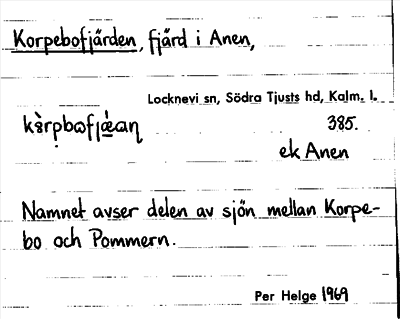 Korpebofjärden, fjärd i Anen,
Locknevi sn, Södra Tjusts hd, Kalm. l.
385.
ek Anen
Namnet avser delen av sjön mellan Korpe-
bo och Pommern.
Per Helge 1969